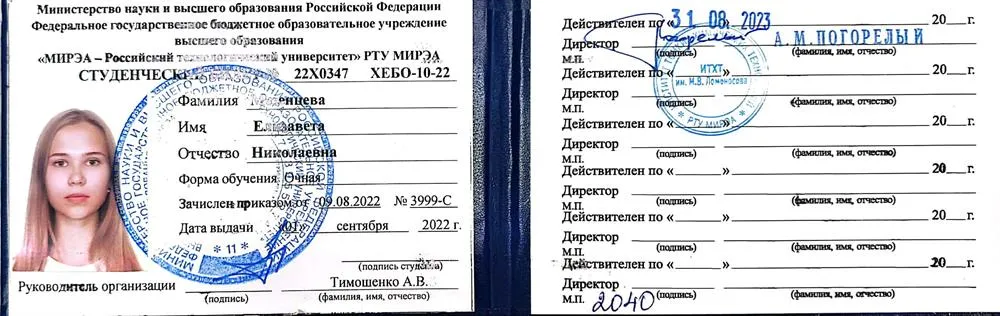 Министерство науки и высшего образования Российской Федерации
Федеральное государственное бюджетное образовательное учреждение
высшего образования
«МИРЭА – Российский технологический университет» РТУ МИРЭА
СТУДЕНЧЕСКИЙ 22Х0347 ХЕБО-10-22
Фамилия
Имя Елизавета
Отчество Николаевна
Форма обучения Очная
Зачислен приказом от 09.08.2022 № 3999-С
Дата выдачи «01» сентября 2022 г.
(подпись студента)
Руководитель организации Тимошенко А.В.
(подпись) (фамилия, имя, отчество)
* 11 *
Действителен по «31 08 2023 20 г.
Директор А.М.ПОГОРЕЛЫЙ
М.П. (подпись) (фамилия, имя, отчество)
ИТХТ
им. М.В. Ломоносова
* РТУ МИРЭА *
Действителен по « » 20 г.
Директор
М.П. (подпись) (фамилия, имя, отчество)
Действителен по « » 20 г.
Директор
М.П. (подпись) (фамилия, имя, отчество)
Действителен по « » 20 г.
Директор
М.П. (подпись) (фамилия, имя, отчество)
Действителен по « » 20 г.
Директор
М.П. (подпись) (фамилия, имя, отчество)
Действителен по « » 20 г.
Директор
М.П. (подпись) (фамилия, имя, отчество)
2040